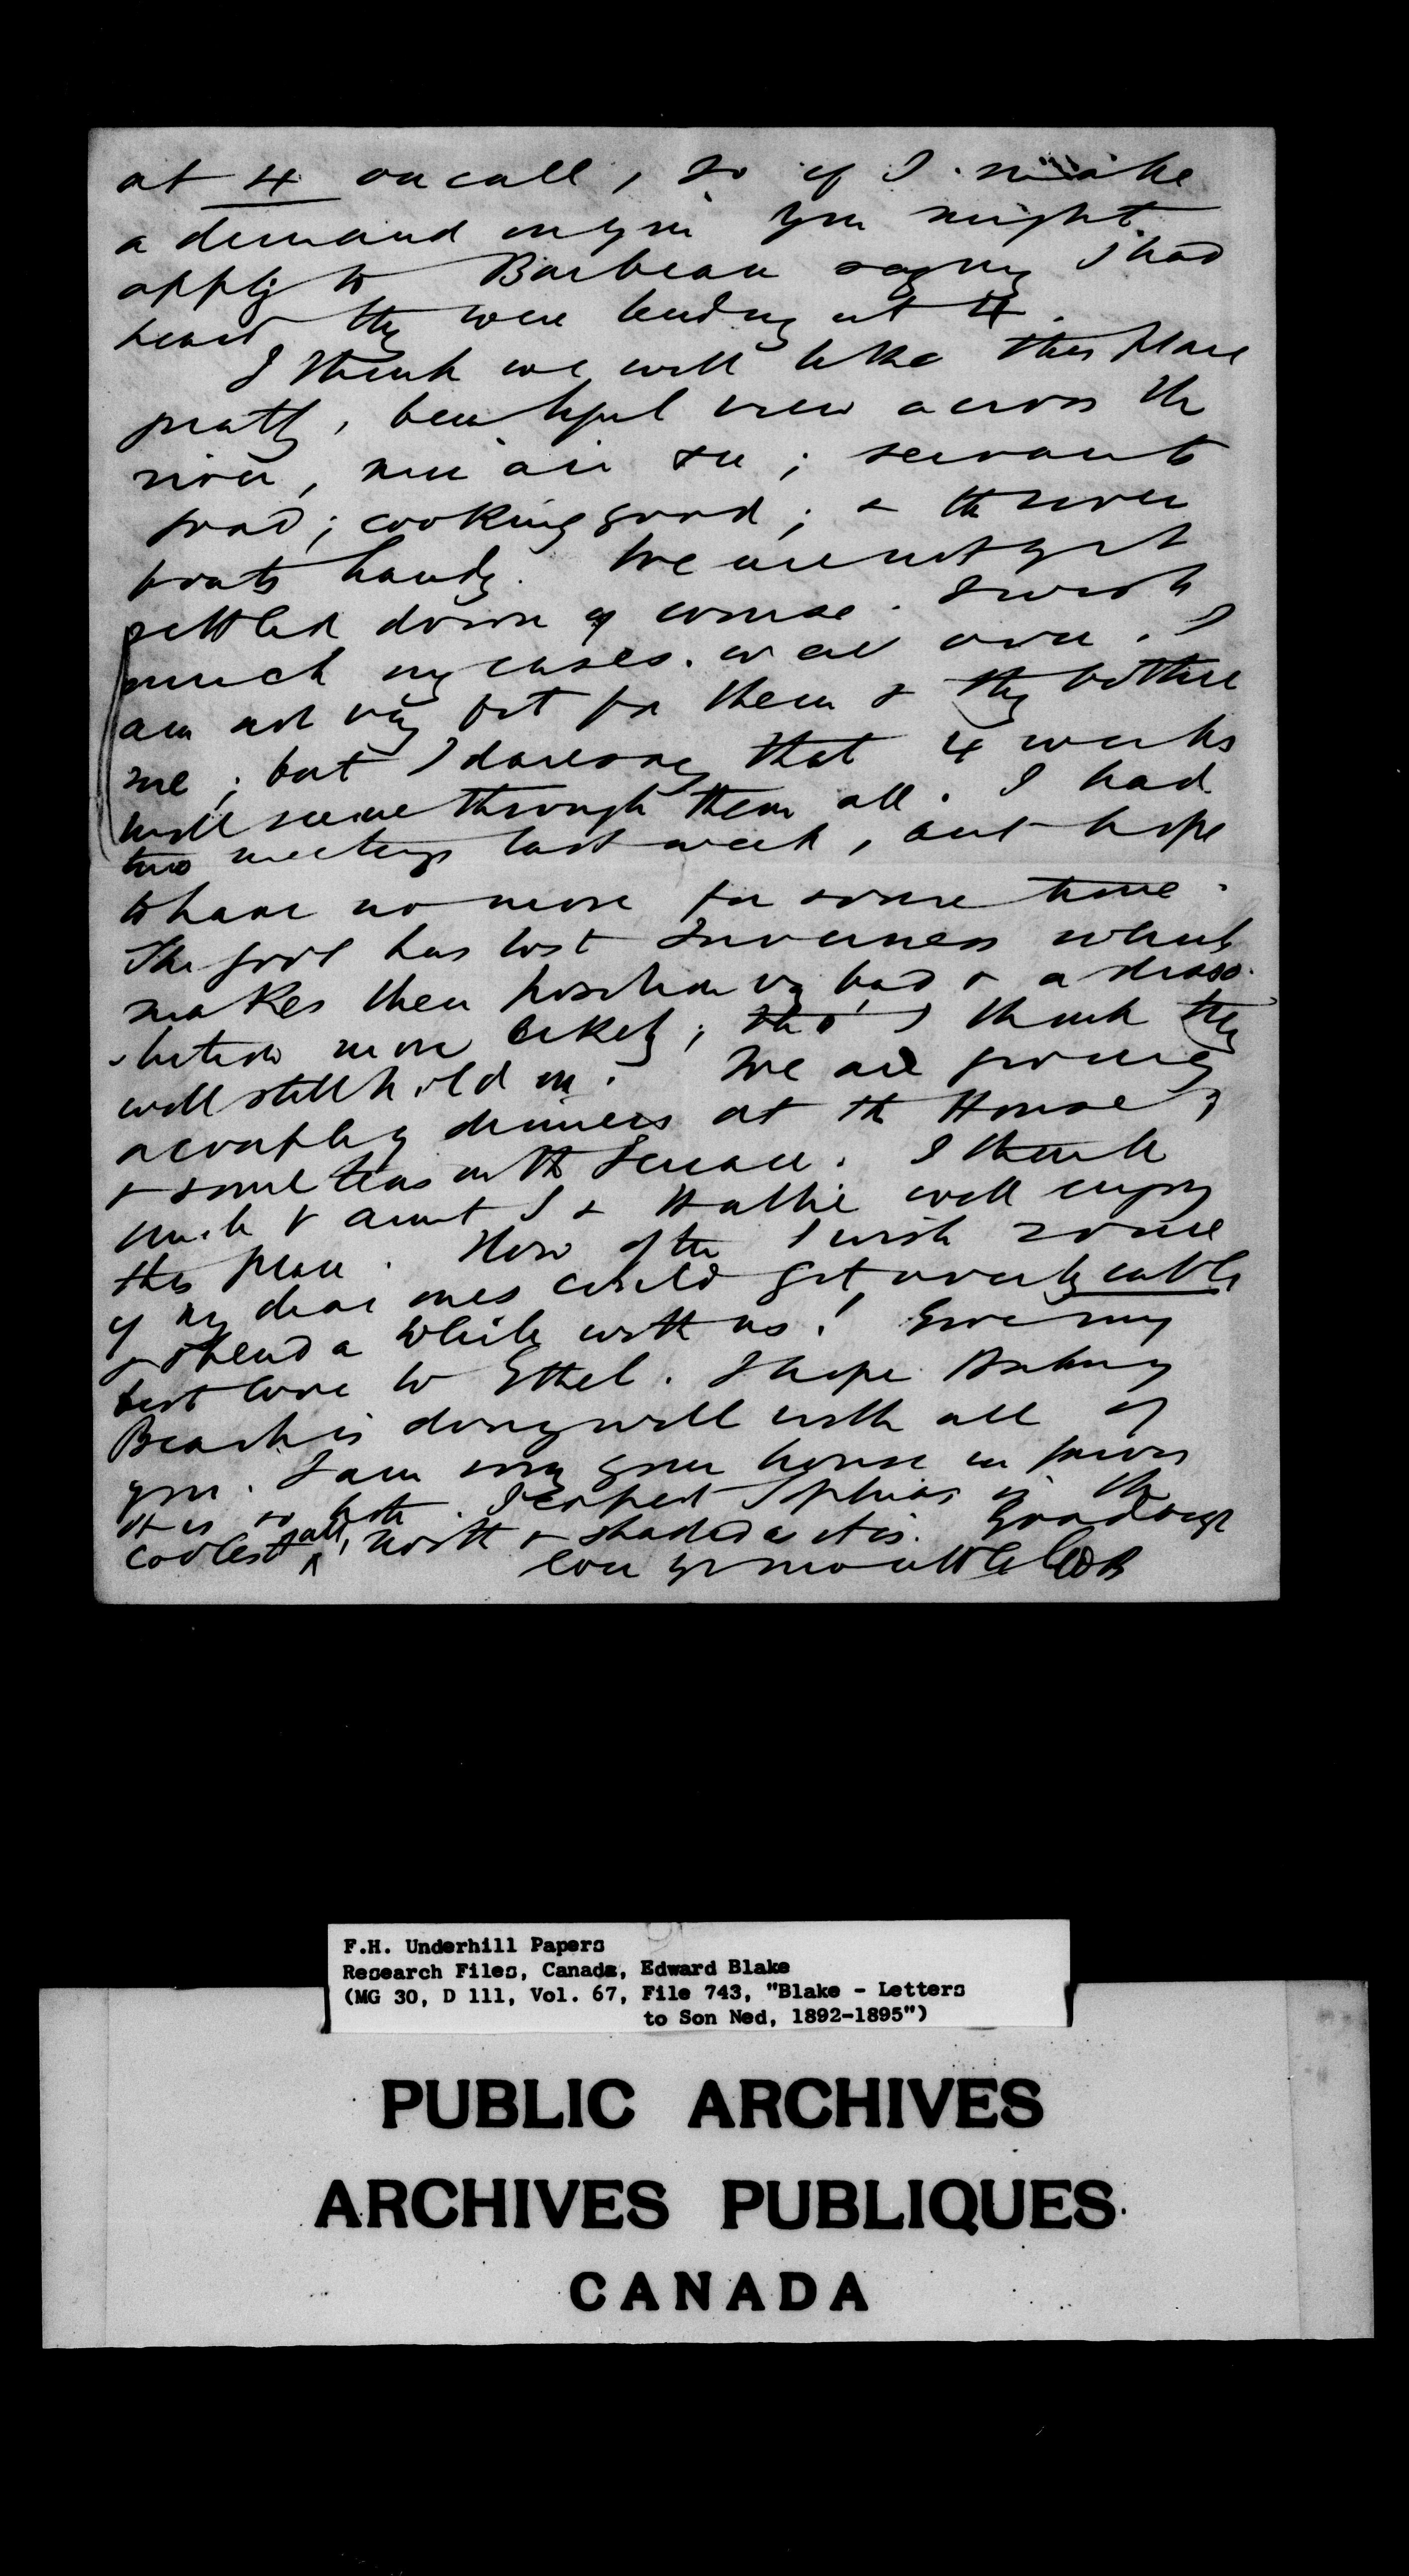 at 4 on call, so if I make
a demand on you you might
apply to Barbeau saying I had
heard they were lending at 4.
I think we will like this place
greatly, beautiful view across the
river, nice air &c; servants
good; cooking good; & the river
boats handy. We are not yet
settled down of course. I wish
much my cases were over. I
am not very fit for them & they bother
me; but I daresay that 4 weeks
will see me through them all. I had
two meetings last week, but hope
to have no more for some time.
The govt has lost Inverness which
makes their position vy bad & a disso-
lution more likely; tho' I think they
will still hold on. We are giving
a couple of dinners at the House,
& some teas on the Terrace. I think
Uncle & Aunt S & Hattie will enjoy
this place. How often I wish some
of my dear ones could get over by cable
& spend a while with us! Give my
best love to Ethel. I hope
Beach is doing well with all of
you. I am sorry your house in town
it is so hot. I escaped I in the
coolest of all, north & shaded as it is. Goodbye
love yr most affte EB
F.H. Underhill Papers
Research Files, Canada, Edward Blake
(MG 30, D 111, Vol. 67, File 743, "Blake - Letters
to Son Ned, 1892-1895")
PUBLIC ARCHIVES
ARCHIVES PUBLIQUES
CANADA